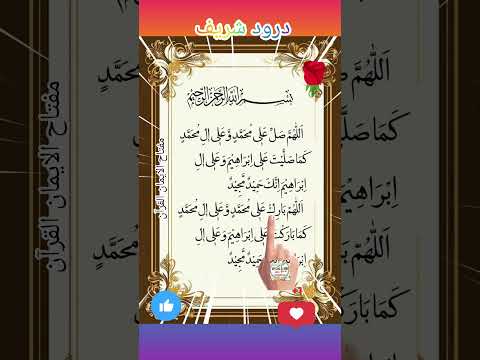 درود شریف
بِسْمِ اللهِ الرَّحْمٰنِ الرَّحِيْمِ
اَللّٰهُمَّ صَلِّ عَلٰى مُحَمَّدٍ وَّعَلٰى اٰلِ مُحَمَّدٍ
كَمَا صَلَّيْتَ عَلٰى اِبْرَاهِيْمَ وَعَلٰى اٰلِ
اِبْرَاهِيْمَ اِنَّكَ حَمِيْدٌ مَّجِيْدٌ
اَللّٰهُمَّ بَارِكْ عَلٰى مُحَمَّدٍ وَّعَلٰى اٰلِ مُحَمَّدٍ
كَمَا بَارَكْتَ عَلٰى اِبْرَاهِيْمَ وَعَلٰى اٰلِ
حَمِيْدٌ مَّجِيْدٌ
مفتاح الایمان القرآن